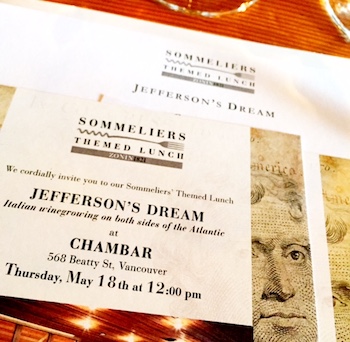 SOMMELIERS
THEMED LUNCH
JEFFERSON'S DREAM
SOMMELIERS
THEMED LUNCH
ZONIN1821
We cordially invite you to our Sommeliers' Themed Lunch
JEFFERSON'S DREAM
Italian winegrowing on both sides of the Atlantic
at
CHAMBAR
568 Beatty St, Vancouver
Thursday, May 18th at 12:00 pm